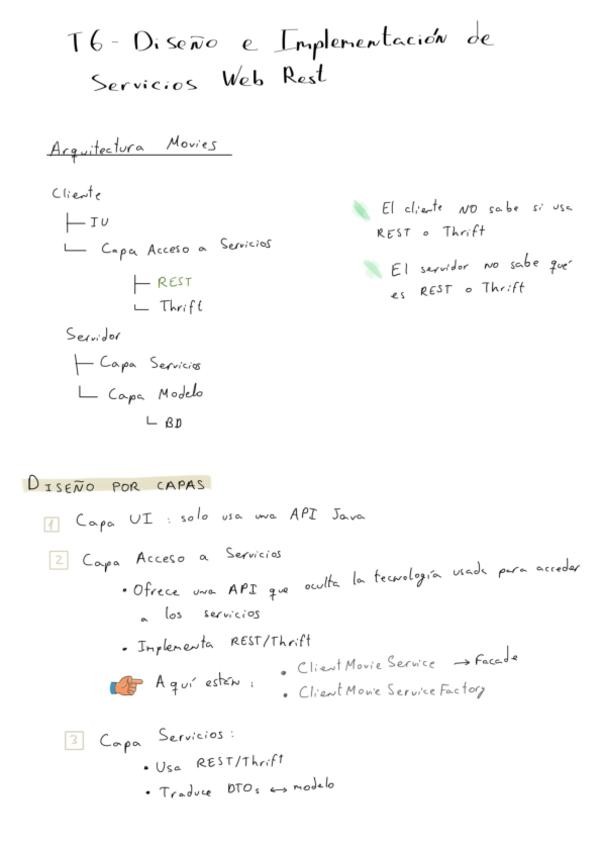 T6 - Diseño e Implementación de
Servicios Web Rest
Arquitectura Movies
Cliente
IU
Capa Acceso a Servicios
REST
Thrift
Servidor
Capa Servicios
Capa Modelo
BD
El cliente NO sabe si usa
REST o Thrift
El servidor no sabe qué
es REST o Thrift
DISEÑO POR CAPAS
1 Capa UI : solo usa una API Java
2 Capa Acceso a Servicios
• Ofrece una API que oculta la tecnología usada para acceder
a los servicios
• Implementa REST/Thrift
Aquí están :
• ClientMovieService → Facade
• ClientMovieServiceFactory
3 Capa Servicios :
• Usa REST/Thrift
• Traduce DTOs ↔ modelo